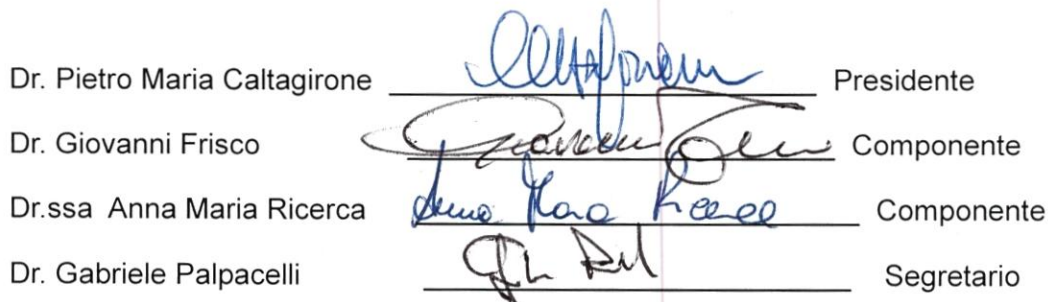 Dr. Pietro Maria Caltagirone Presidente
Dr. Giovanni Frisco Giovanni Componente
Dr.ssa Anna Maria Ricerca Anna Maria Ricerca Componente
Dr. Gabriele Palpacelli Segretario